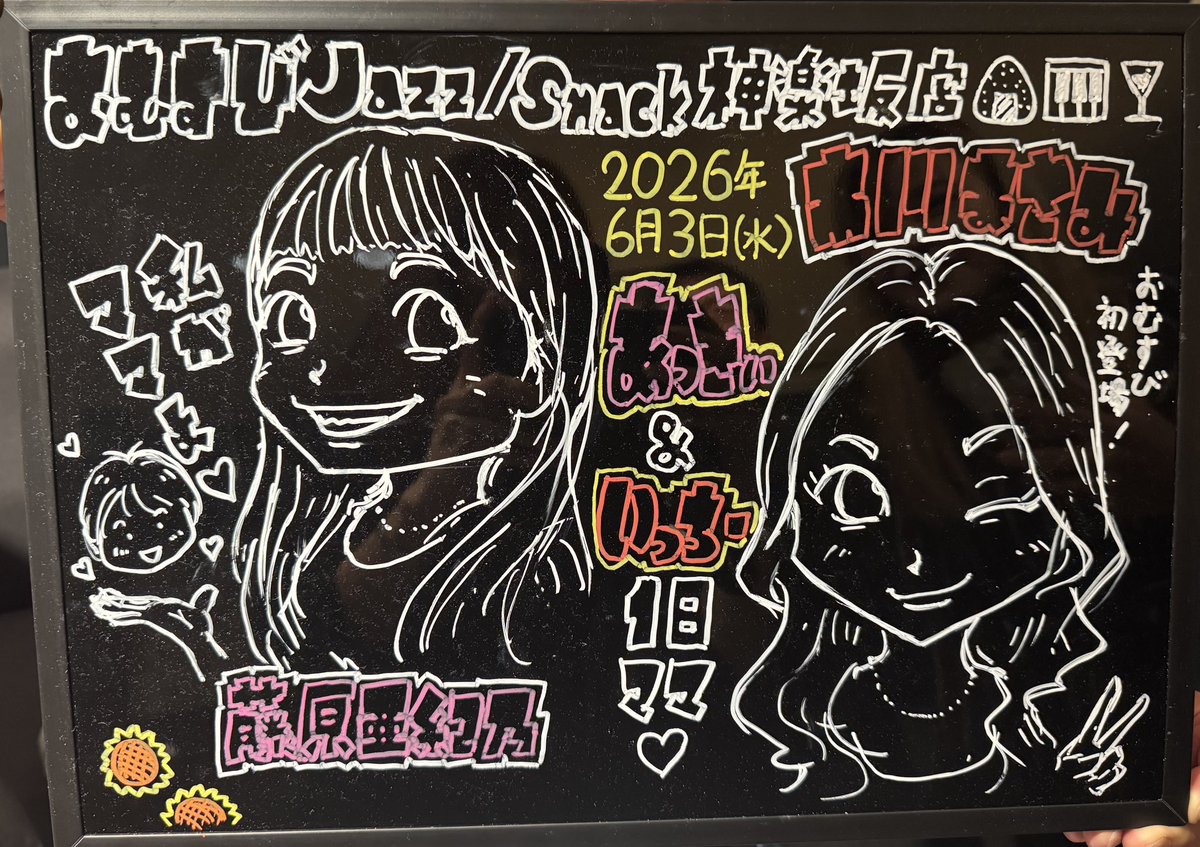 おむすびJazz/Snack神楽坂店
2026年
6月3日(水)
市川まさみ
おむすび
初登場!
私が
ママ
よ
あっきぃ
&
いっちー
1日
ママ
藤原亜紀乃